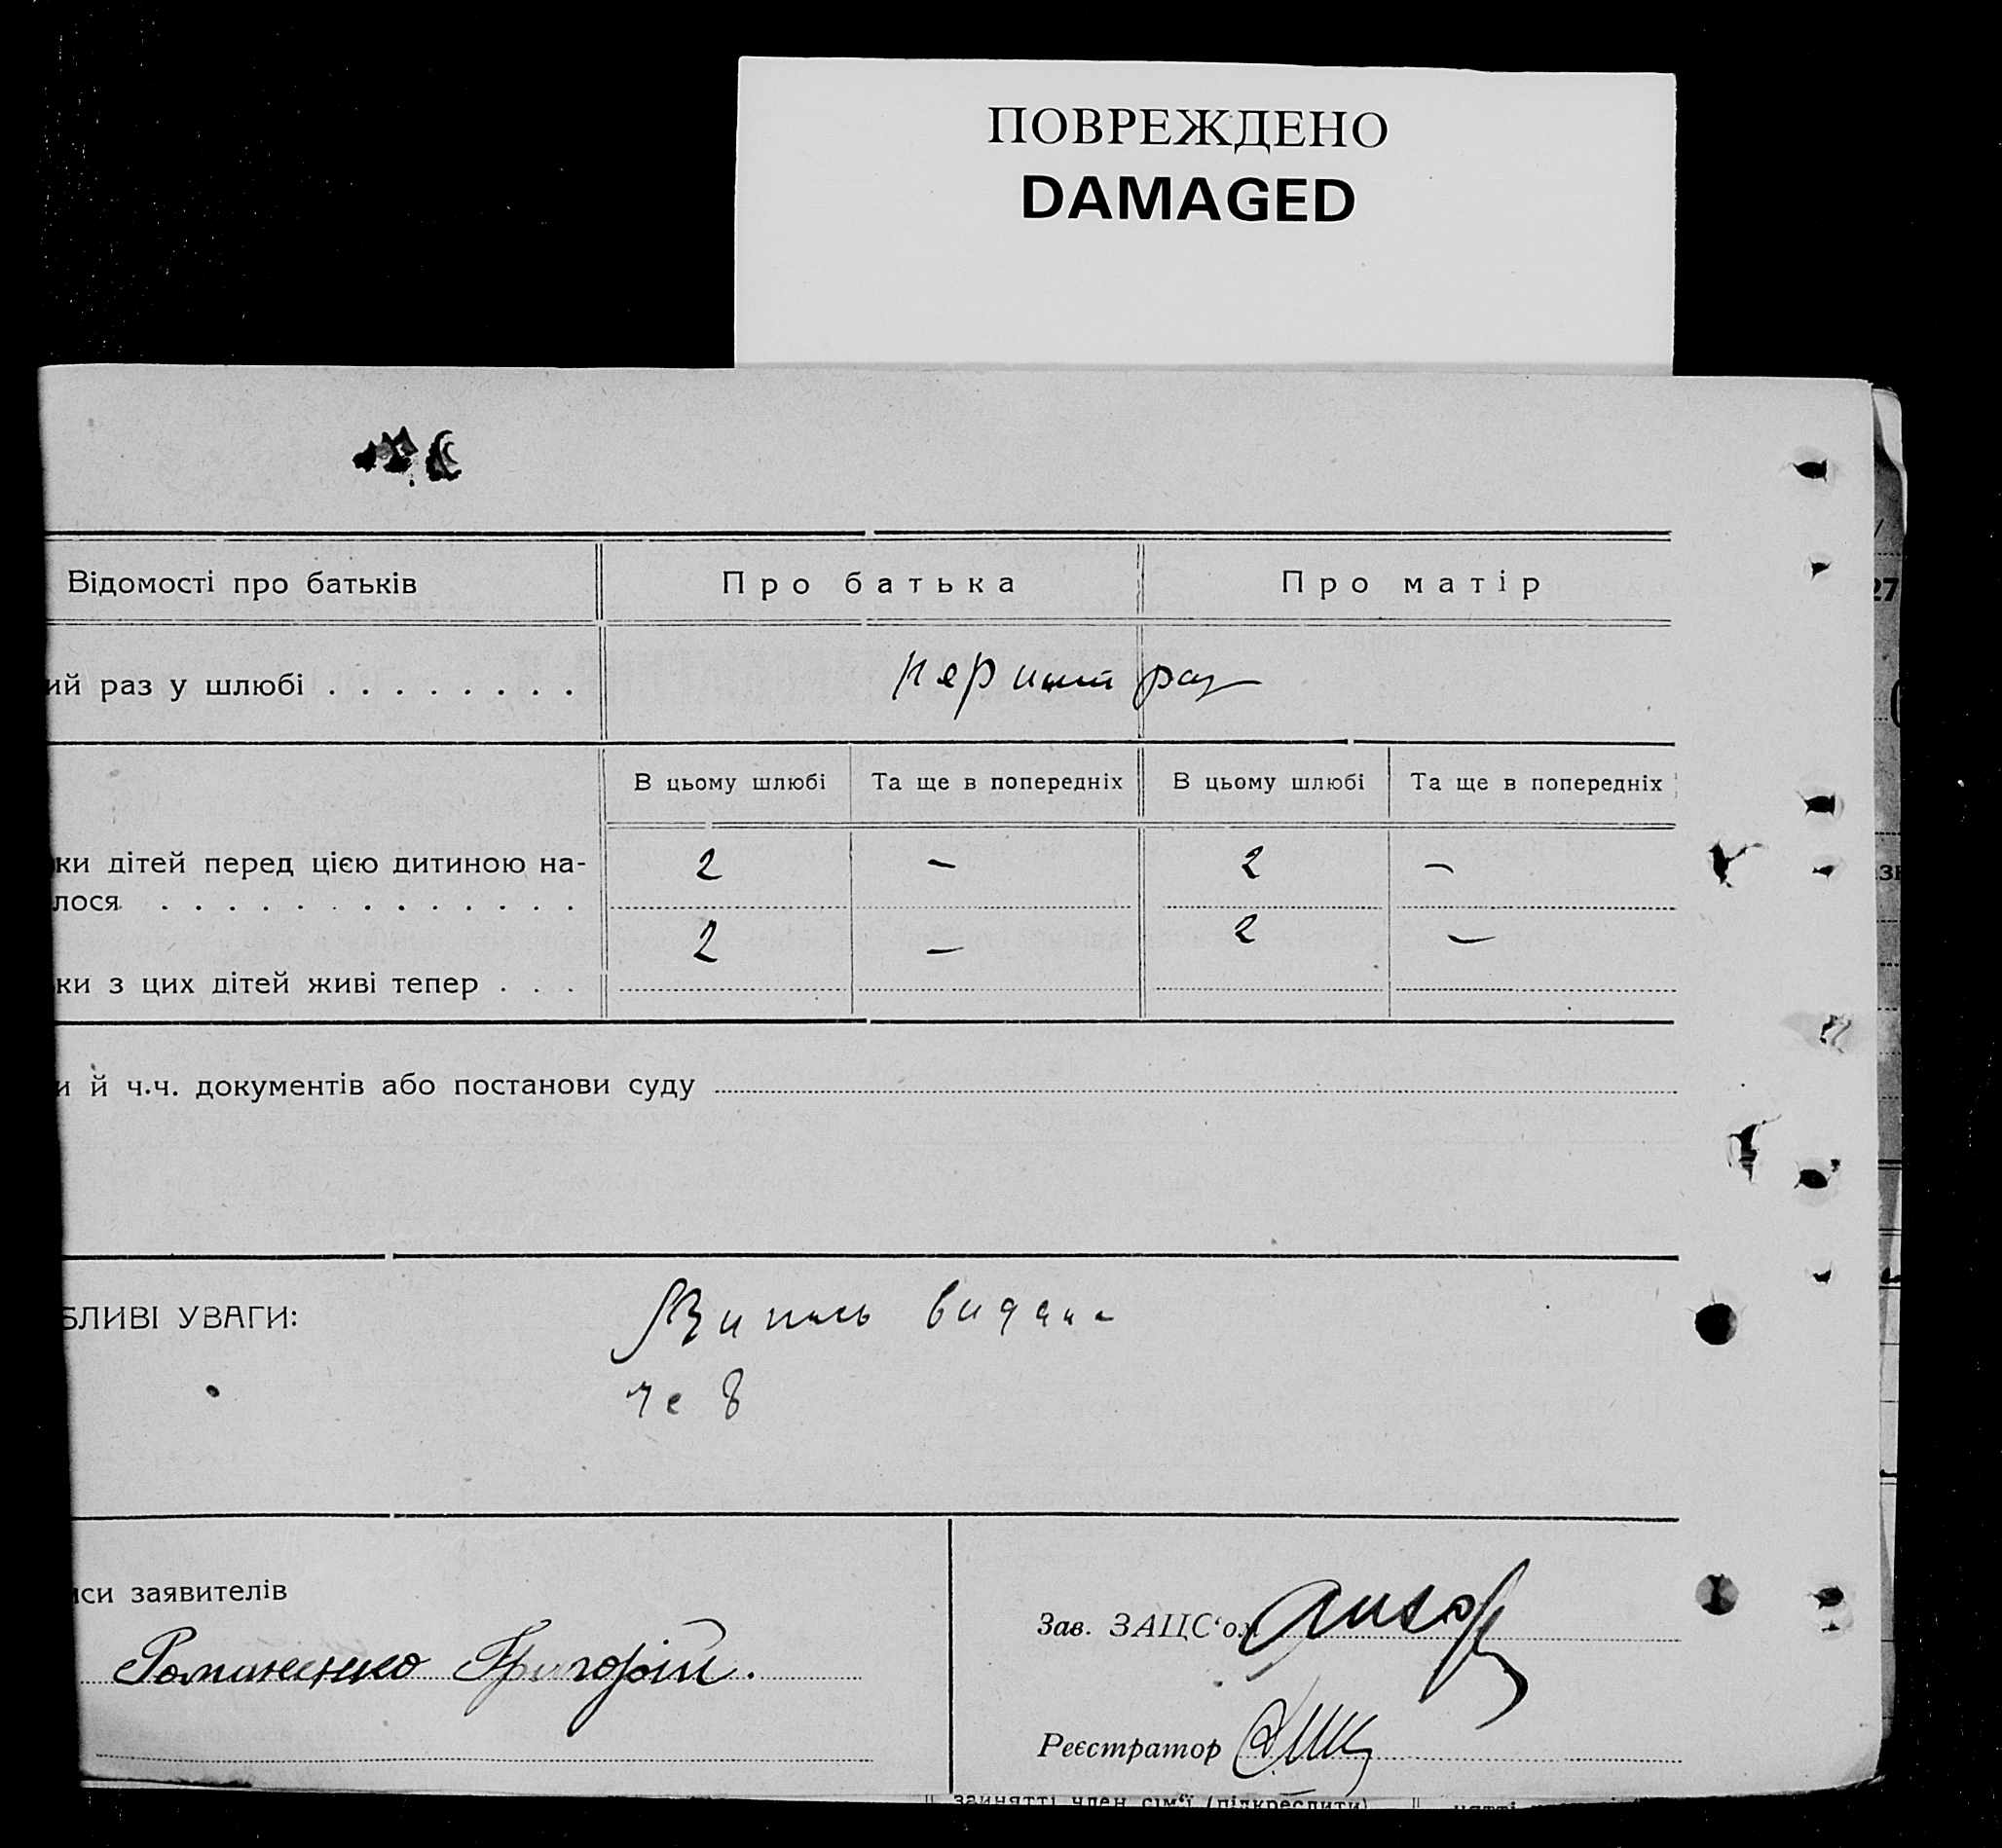 ПОВРЕЖДЕНО
DAMAGED
27
Відомості про батьків Про батька Про матір
ий раз у шлюбі . . . . . . . . перший раз
В цьому шлюбі Та ще в попередніх В цьому шлюбі Та ще в попередніх
ки дітей перед цією дитиною на- 2 – 2 –
лося . . . . . . . . . . . . .
ки з цих дітей живі тепер . . . 2 – 2 –
и й ч.ч. документів або постанови суду
БЛИВІ УВАГИ: Випись видана
си заявителів
Зав. ЗАЦС‘ом
Романенко Григорій.
Реєстратор
зайнятті член сім‘ї (підкреслити)